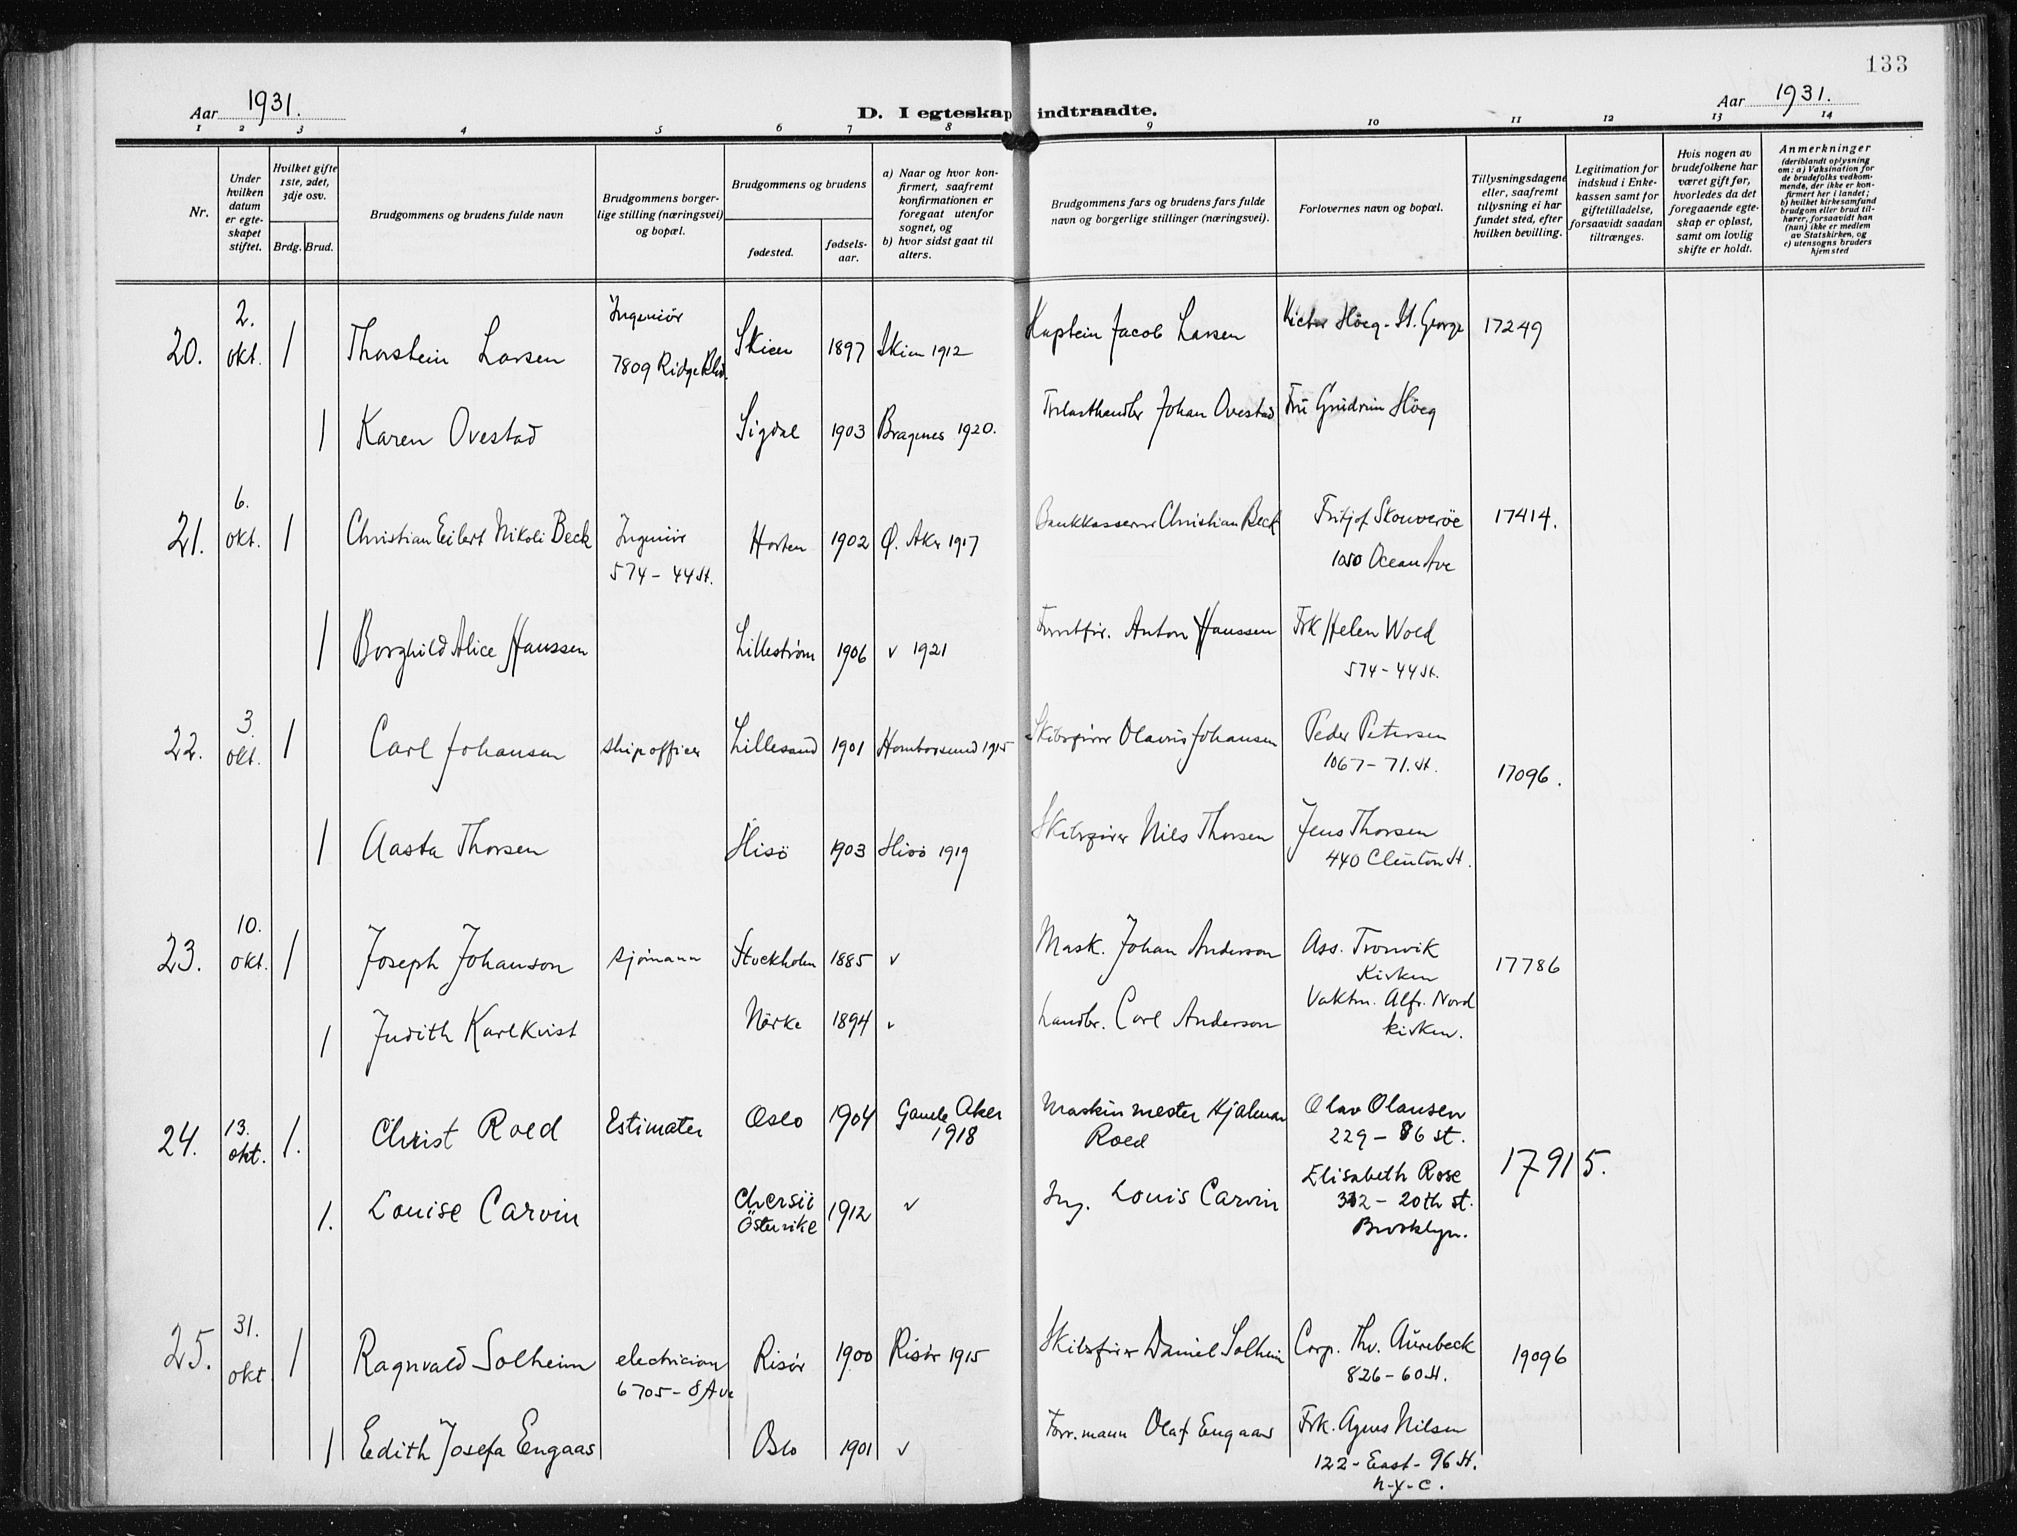 133
Aar 1931.
D. I egteskap indtraadte.
Aar 1931.
1 2 3 4 5 6 7 8 9 10 11 12 13 14
Nr.
Under hvilken datum er egteskapet stiftet.
Hvilket gifte 1ste, 2det, 3dje osv.
Brdg. Brud.
Brudgommens og brudens fulde navn
Brudgommens borgerlige stilling (næringsvei) og bopæl.
Brudgommens og brudens
fødested.
fødselsaar.
a) Naar og hvor konfirmert, saafremt konfirmationen er foregaat utenfor sognet, og
b) hvor sidst gaat til alters.
Brudgommens fars og brudens fars fulde navn og borgerlige stillinger (næringsvei).
Forlovernes navn og bopæl.
Tillysningsdagene eller, saafremt tillysning ei har fundet sted, efter hvilken bevilling.
Legitimation for indskud i Enkekassen samt for giftetilladelse, forsaavidt saadan tiltrænges.
Hvis nogen av brudefolkene har været gift før, hvorledes da det foregaaende egteskap er opløst, samt om lovlig skifte er holdt.
Anmerkninger
(deriblandt oplysning om: a) Vaksination for de brudefolks vedkommende, der ikke er konfirmert her i landet;
b) hvilket kirkesamfund brudgom eller brud tilhører, forsaavidt han (hun) ikke er medlem av Statskirken, og
c) utensogns bruders hjemsted
20. 2. okt. 1 Thorstein Larsen Ingeniör 7809 Ridge Blvd. Skien 1897 Skien 1912 Kaptein Jacob Larsen Victor Höeg - St. George 17249
1 Karen Ovestad Sigdal 1903 Bragenes 1920. Trelasthandler Johan Ovestad Fru Gudrun Höeg
21. 6. okt. 1 Christian Eilert Nikoli Beck Ingeniör 574 - 44 St. Horten 1902 Ø. Aker 1917 Bankkasserer Christian Beck Fritjof Skouverøe 1050 Ocean Ave 17414.
1 Borghild Alice Hanssen Lillestrøm 1906 v 1921 Anton Hanssen Frk Helen Wold
574 - 44 St.
22. 3. okt. 1 Carl Johansen ship officer Lillesand 1901 Homborsund 1915 Skibsfører Olavus Johansen Peder Petersen
1067 - 71. St. 17096.
1 Aasta Thorsen Hisö 1903 Hisö 1919 Skibsfører Nils Thorsen Jens Thorsen
440 Clinton St.
23. 10. okt. 1 Joseph Johanson sjömann Stockholm 1885 v Mask. Johan Anderson Ass. Tronvik
Kirken 17786
1 Judith Karlkvist Närke 1894 v Landbr. Carl Anderson Vaktm. Alfr. Nord
kirken.
24. 13. okt. 1. Christ Roed Estimater Oslo 1904 Gamle Aker 1918 Maskinmester Hjalmar Roed Olav Olausen
229 - 86 st. 17915.
1. Louise Carvin Östrrike 1912 v Ing. Louis Carvin Elisabeth Rose
312 - 20th st.
Brooklyn.
25. 31. okt 1 Ragnvald Solheim electrician 6705 - 8 Ave Risör 1900 Risör 1915 Skibsfører Daniel Solheim Corp. Thv. Aurebeck
826 - 60 St. 19096
1 Edith Josefa Engaas Oslo 1901 v Forr.mann Olaf Engaas Frk. Agnes Nilsen
122 - East - 96 St.
N-Y-C.